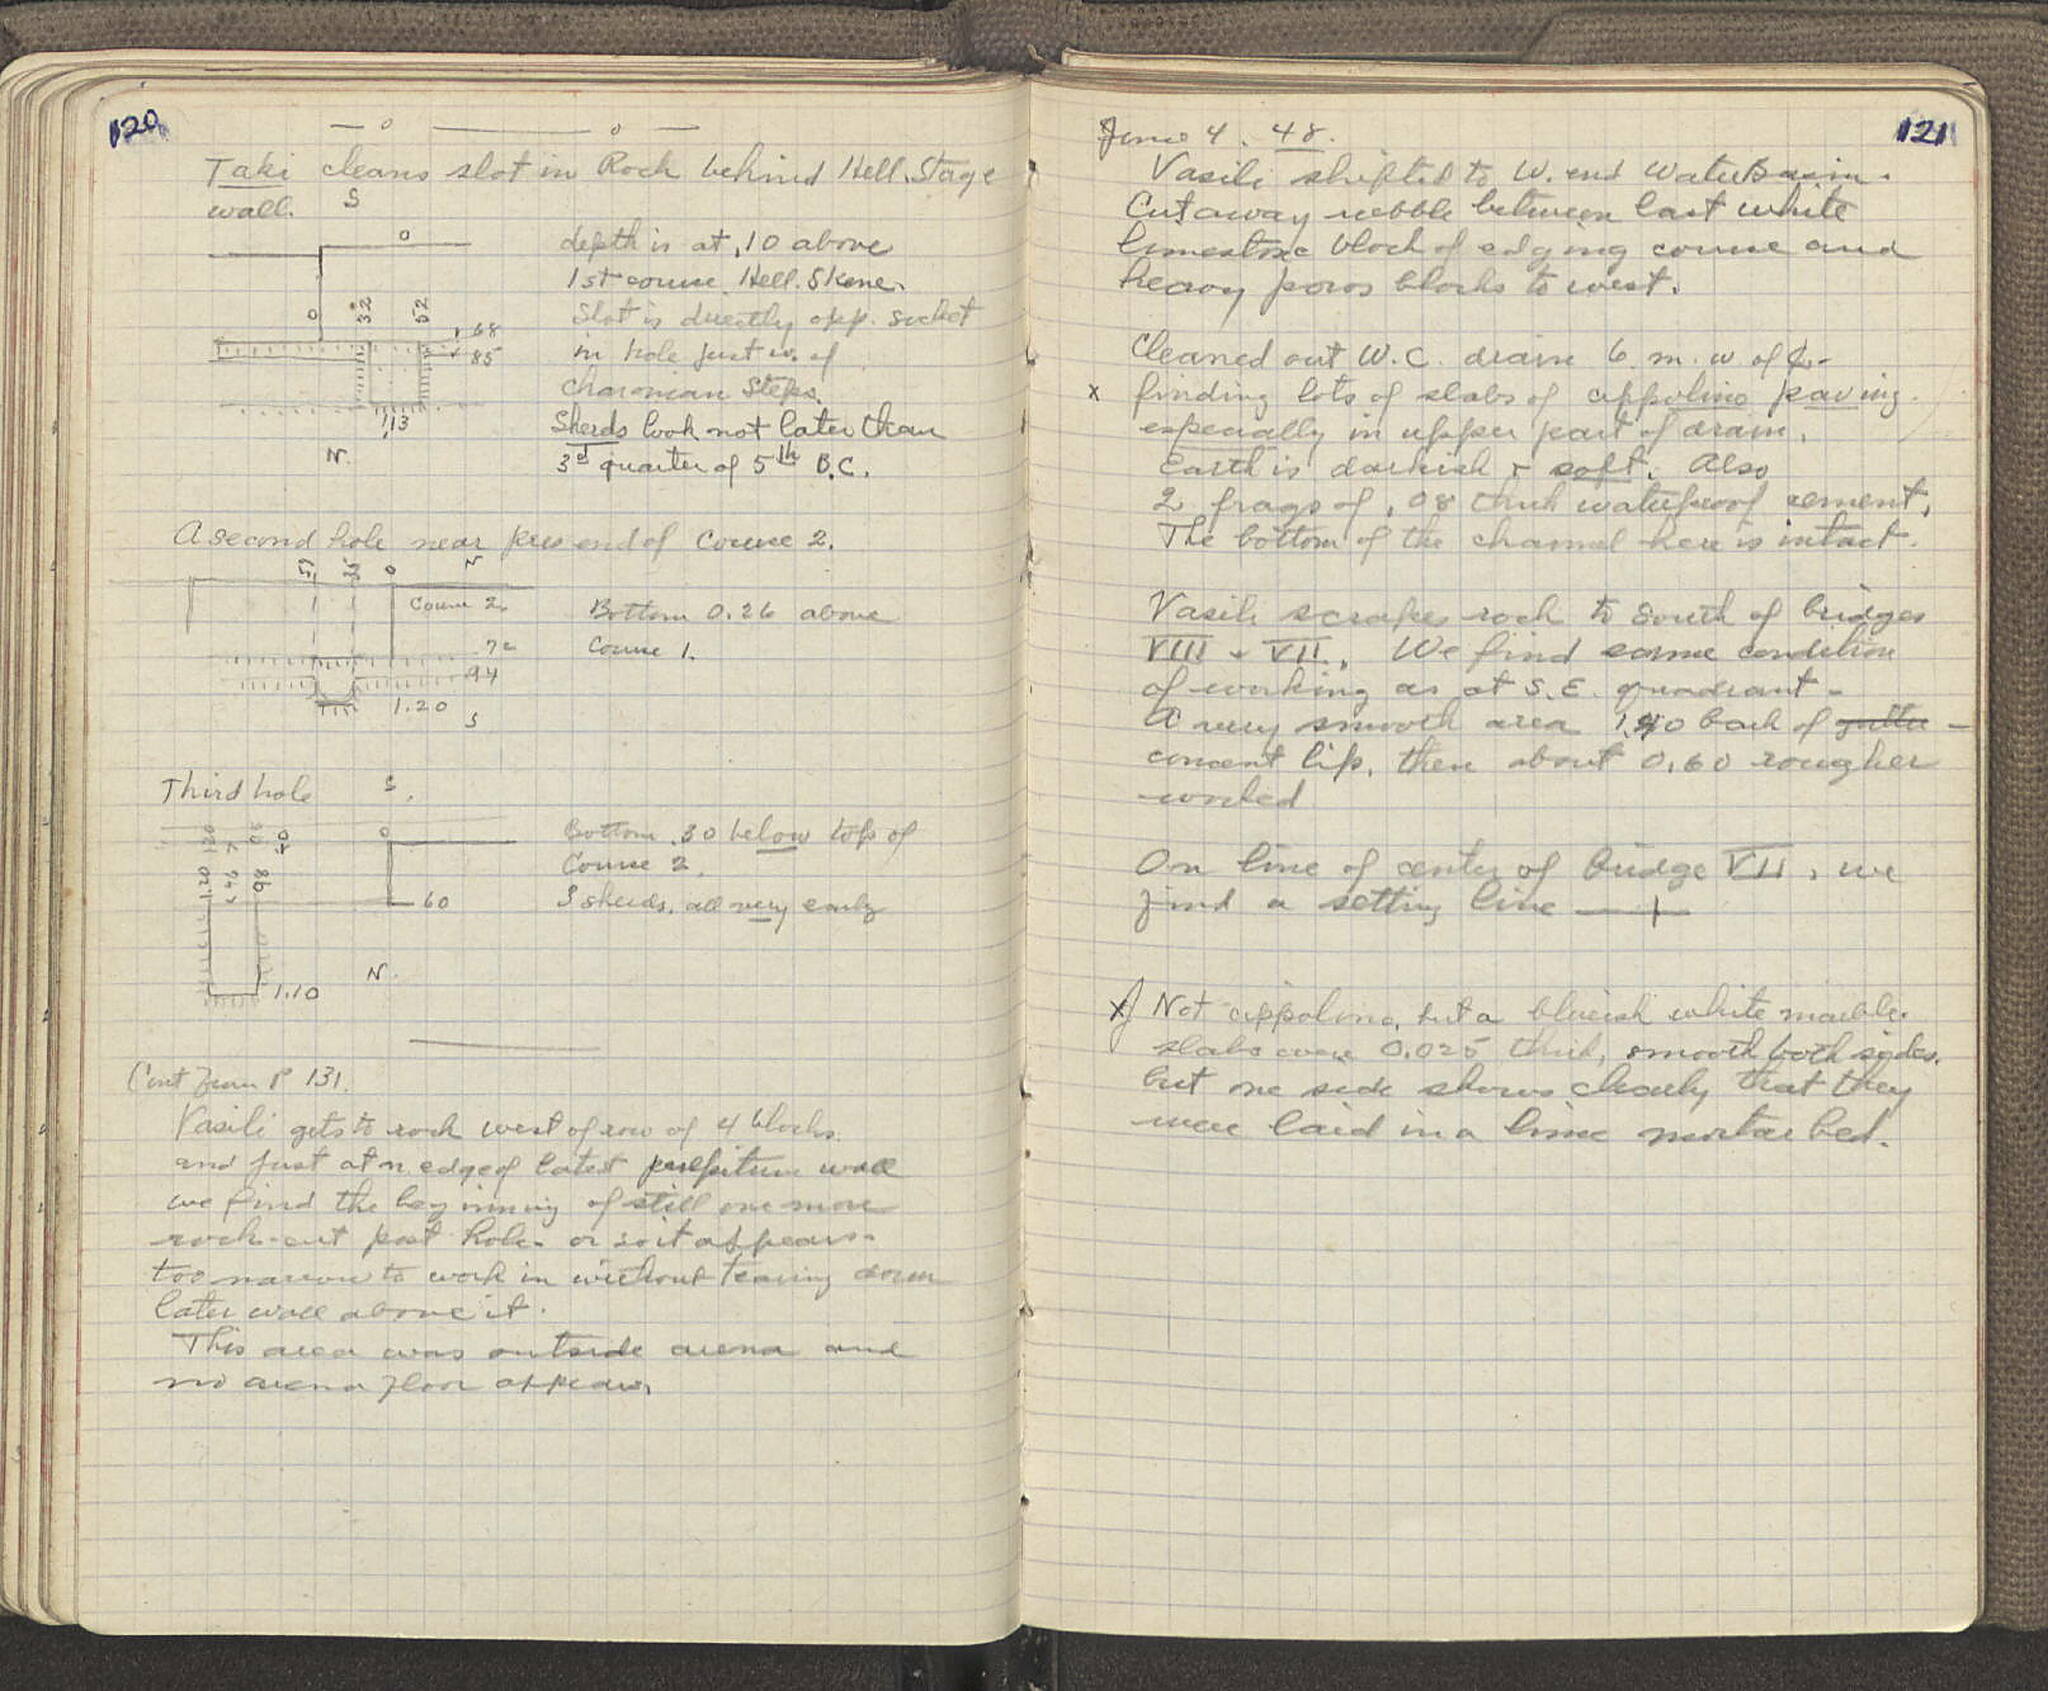 120
Taki cleans slot in Rock behind Hell. Stage
wall.
S
depth is at .10 above
1st course Hell. Skene.
Slot is directly opp. socket
in hole just w. of
charonian steps.
Sherds look not later than
3rd quarter of 5th B.C.
O
O
32
52
68
85
1.13
N.
A second hole near pres end of Course 2.
O
N
Course 2.
Bottom 0.26 above
Course 1.
94
1.20
S
Third hole
S.
O
Bottom .30 below top of
Course 2.
3 sherds, all very early
1.20
94
86
60
N.
1.10
Cont from P 131.
Vasili gets to rock west of row of 4 blocks
and just at n. edge of latest pulpitum wall
we find the beginning of still one more
rock-cut post hole - or so it appears -
too narrow to work in without tearing down
later wall above it.
This area was outside arena and
no arena floor appears.
121
June 4. 48.
Vasili shifted to W. end Water Basin.
Cut away rubble between last white
limestone block of edging course and
heavy poros blocks to west.
Cleaned out W.C. drain 6 m. w of ℄ -
x finding lots of slabs of cippolino paving.
especially in upper part of drain.
Earth is darkish + soft. Also
2 frags of .08 thick waterproof cement.
The bottom of the channel here is intact.
Vasili scrapes rock to South of bridges
VIII + VII. We find same condition
of working as at S.E. quadrant -
A very smooth area 1.40 back of gutter -
cement lip, then about 0.60 rougher
worked
On line of center of bridge VII, we
find a setting line
x) Not cippolino, but a blueish white marble.
slabs over 0.025 thick, smooth both sides.
but one side shows clearly that they
were laid in a lime mortar bed.